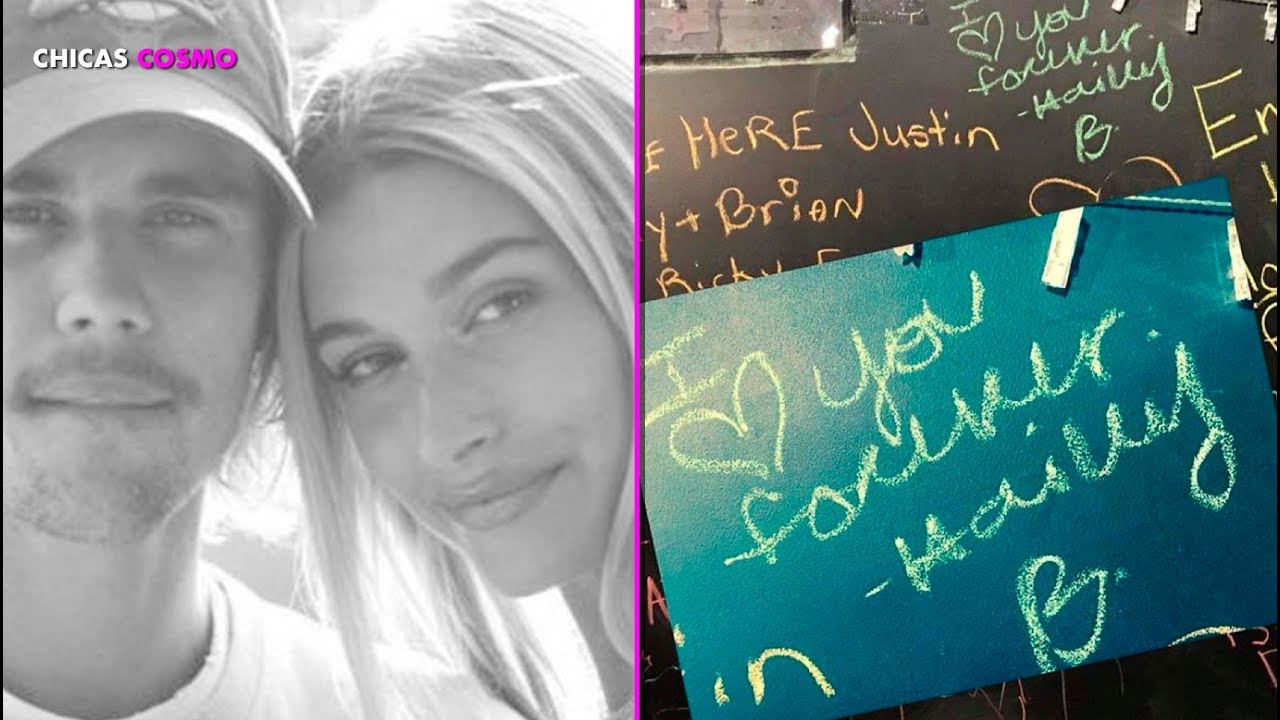 CHICAS COSMO
I
♡ you
forever.
-Hailey
B.
HeRE Justin
y + BRiAN
Ricky
I
♡ you
forever.
-Hailey
B.
in